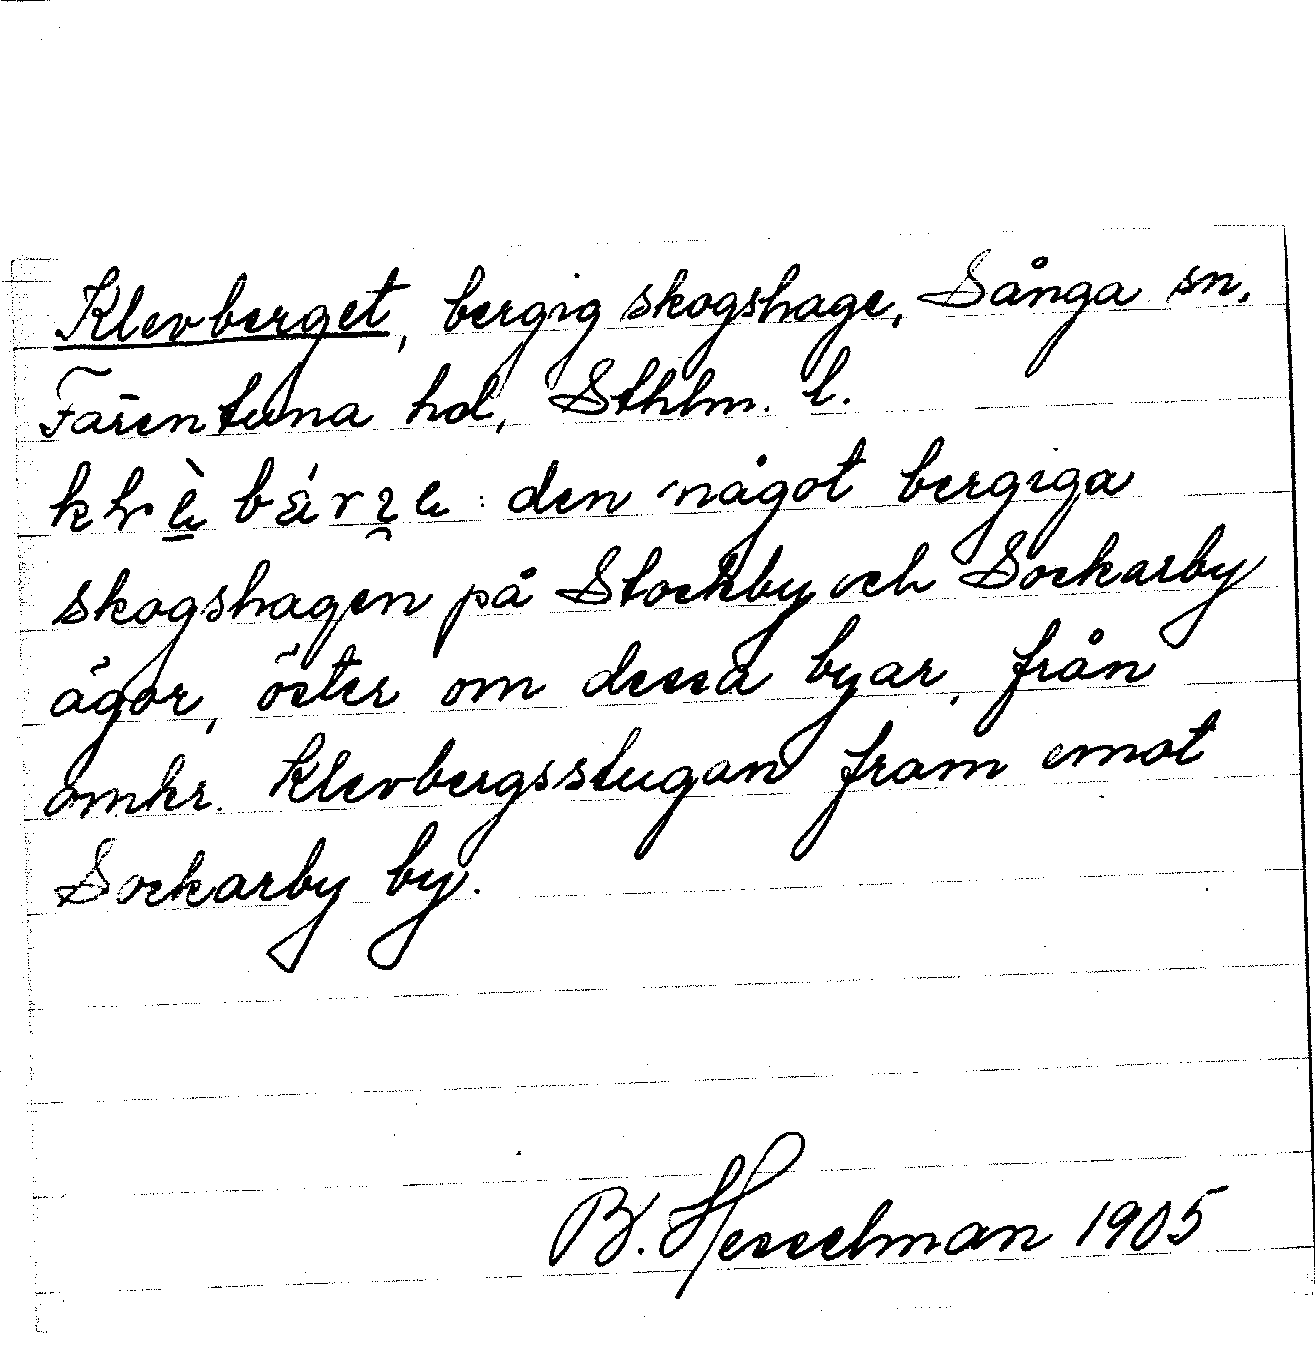 Klevberget, bergig skogshage, Sånga sn,
Färentuna hd, Sthlm. l.
den något bergiga
skogshagen på Stockby och Sockarby
ägor, öster om dessa byar, från
omkr. Klevbergsstugan fram emot
Sockarby by.
B. Hesselman 1905